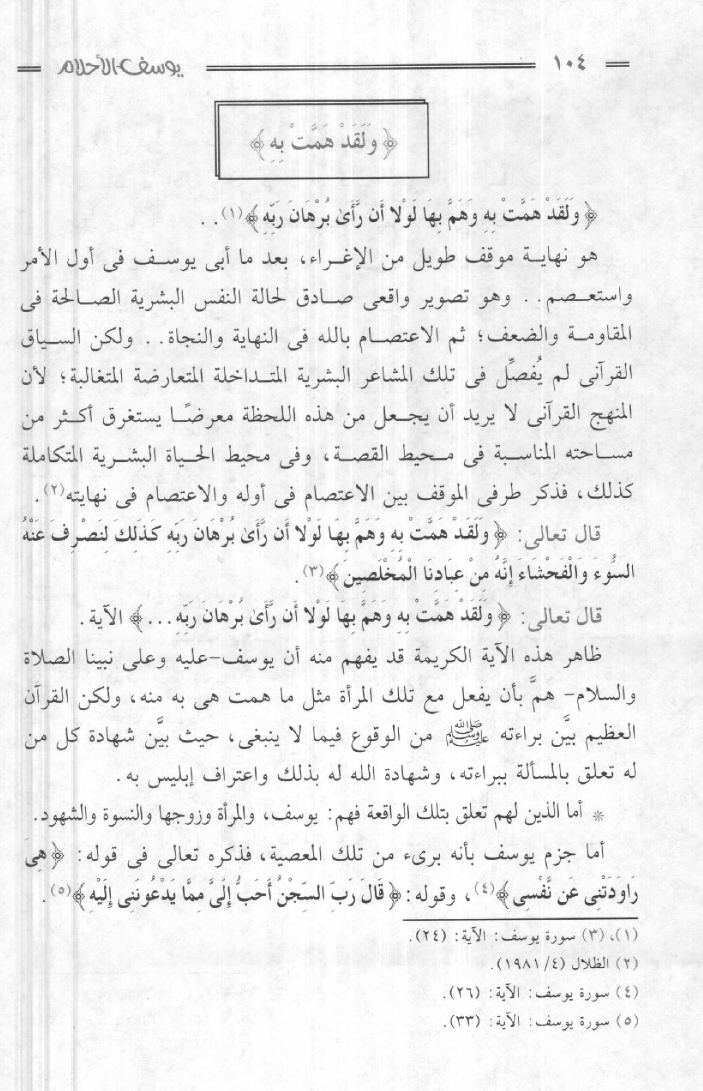 ١٠٤ يوسف الأحلام
﴿ وَلَقَدْ هَمَّتْ بِهِ ﴾
﴿ وَلَقَدْ هَمَّتْ بِهِ وَهَمَّ بِهَا لَوْلا أَن رَّأَىٰ بُرْهَانَ رَبِّهِ ﴾(١) . .
هو نهاية موقف طويل من الإغراء، بعد ما أبى يوسف فى أول الأمر
واستعصم . . وهو تصوير واقعى صادق لحالة النفس البشرية الصالحة فى
المقاومة والضعف؛ ثم الاعتصام بالله فى النهاية والنجاة . . ولكن السياق
القرآنى لم يُفصِّل فى تلك المشاعر البشرية المتداخلة المتعارضة المتغالبة؛ لأن
المنهج القرآنى لا يريد أن يجعل من هذه اللحظة معرضًا يستغرق أكثر من
مساحته المناسبة فى محيط القصة، وفى محيط الحياة البشرية المتكاملة
كذلك، فذكر طرفى الموقف بين الاعتصام فى أوله والاعتصام فى نهايته(٢).
قال تعالى: ﴿ وَلَقَدْ هَمَّتْ بِهِ وَهَمَّ بِهَا لَوْلا أَن رَّأَىٰ بُرْهَانَ رَبِّهِ كَذَلِكَ لِنَصْرِفَ عَنْهُ
السُّوءَ وَالْفَحْشَاءَ إِنَّهُ مِنْ عِبَادِنَا الْمُخْلَصِينَ ﴾(٣).
قال تعالى: ﴿ وَلَقَدْ هَمَّتْ بِهِ وَهَمَّ بِهَا لَوْلا أَن رَّأَىٰ بُرْهَانَ رَبِّهِ ... ﴾ الآية .
ظاهر هذه الآية الكريمة قد يفهم منه أن يوسف-عليه وعلى نبينا الصلاة
والسلام- همَّ بأن يفعل مع تلك المرأة مثل ما همت هى به منه، ولكن القرآن
العظيم بيَّن براءته ﷺ من الوقوع فيما لا ينبغى، حيث بيَّن شهادة كل من
له تعلق بالمسألة ببراءته، وشهادة الله له بذلك واعتراف إبليس به .
* أما الذين لهم تعلق بتلك الواقعة فهم: يوسف، والمرأة وزوجها والنسوة والشهود.
أما جزم يوسف بأنه برىء من تلك المعصية، فذكره تعالى فى قوله: ﴿ هِيَ
رَاوَدَتْنِي عَن نَّفْسِي ﴾(٤)، وقوله: ﴿ قَالَ رَبِّ السِّجْنُ أَحَبُّ إِلَيَّ مِمَّا يَدْعُونَنِي إِلَيْهِ ﴾(٥).
(١)، (٣) سورة يوسف: الآية: (٢٤).
(٢) الظلال (٤/ ١٩٨١).
(٤) سورة يوسف: الآية: (٢٦).
(٥) سورة يوسف: الآية: (٣٣).